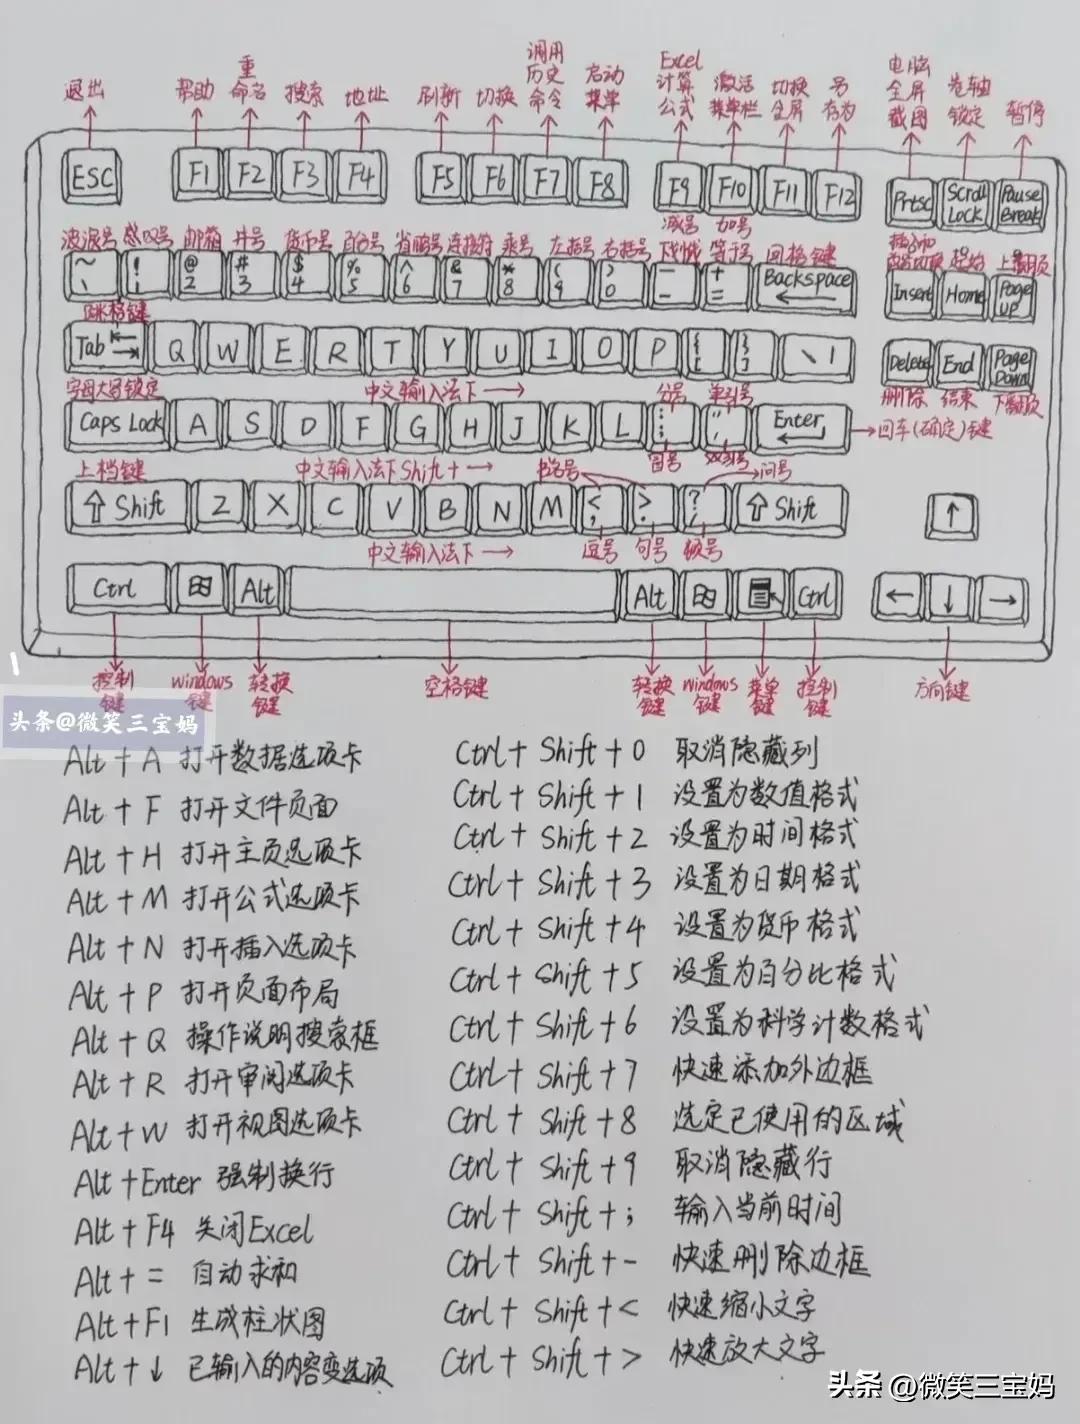 退出 帮助 重命名 搜索 地址 刷新 切换 调用历史命令 启动菜单 Excel计算公式 激活菜单栏 切换全屏 另存为 电脑全屏截图 卷轴锁定 暂停
ESC F1 F2 F3 F4 F5 F6 F7 F8 F9 F10 F11 F12 Prtsc Scroll Lock Pause Break
减号 加号
波浪号 感叹号 邮箱 井号 货币号 百分号 省略号 连接符 乘号 左括号 右括号 下划线 等于号 回格键 起始 上翻页
~ 、 ! 1 @ 2 # 3 $ 4 % 5 ^ 6 & 7 * 8 ( 9 ) 0 — - + = Backspace Insert Home Page up
跳格键
Tab Q W E R T Y U I O P { [ } ] \ | Delete End Page Down
字母大写锁定 中文输入法下 分号 单引号 删除 结束 下翻页
Caps Lock A S D F G H J K L : ; " ' Enter 回车(确定)键
上档键 中文输入法下Shift+ 书名号 冒号 双引号 问号
Shift Z X C V B N M < , > . ? / Shift ↑
中文输入法下 逗号 句号 顿号
Ctrl Alt Alt Ctrl ← ↓ →
控制键 windows键 转换键 空格键 转换键 windows键 菜单键 控制键 方向键
头条@微笑三宝妈
Alt + A 打开数据选项卡
Alt + F 打开文件页面
Alt + H 打开主页选项卡
Alt + M 打开公式选项卡
Alt + N 打开插入选项卡
Alt + P 打开页面布局
Alt + Q 操作说明搜索框
Alt + R 打开审阅选项卡
Alt + W 打开视图选项卡
Alt + Enter 强制换行
Alt + F4 关闭Excel
Alt + = 自动求和
Alt + F1 生成柱状图
Alt + ↓ 已输入的内容变选项
Ctrl + Shift + 0 取消隐藏列
Ctrl + Shift + 1 设置为数值格式
Ctrl + Shift + 2 设置为时间格式
Ctrl + Shift + 3 设置为日期格式
Ctrl + Shift + 4 设置为货币格式
Ctrl + Shift + 5 设置为百分比格式
Ctrl + Shift + 6 设置为科学计数格式
Ctrl + Shift + 7 快速添加外边框
Ctrl + Shift + 8 选定已使用的区域
Ctrl + Shift + 9 取消隐藏行
Ctrl + Shift + ; 输入当前时间
Ctrl + Shift + - 快速删除边框
Ctrl + Shift + < 快速缩小文字
Ctrl + Shift + > 快速放大文字
头条 @微笑三宝妈